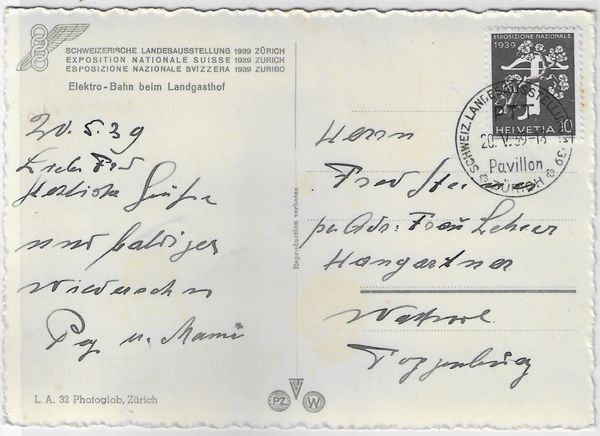 SCHWEIZERISCHE LANDESAUSSTELLUNG 1939 ZÜRICH
EXPOSITION NATIONALE SUISSE 1939 ZURICH
ESPOSIZIONE NAZIONALE SVIZZERA 1939 ZURIGO
Elektro-Bahn beim Landgasthof
20.5.39
Lieber Fred
Herzliche Grüsse
und baldiges
Wiedersehn
u. Mami
L. A. 32 Photoglob, Zürich
Reproduction verboten
PZ
W
ESPOSIZIONE NAZIONALE
1939
HELVETIA 10
SCHWEIZ. LANDESAUSSTELLUNG 1939
PTT
20.V.39-18
Pavillon
ZÜRICH
Herrn
Fred Stein
per Adr: Frau Lehrer
Hangartner
Wattwil
Toggenburg